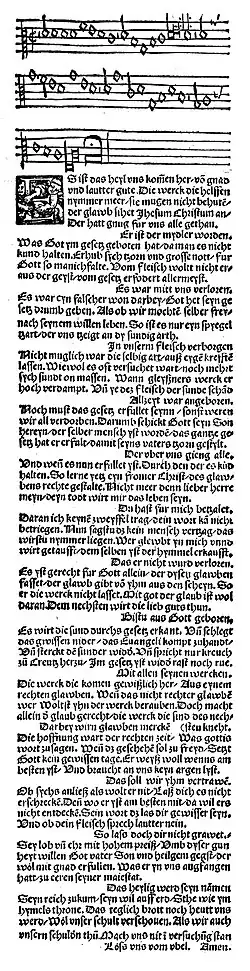 S ist das heyl vns kom̄en her/võ gnad
vnd lautter gute. Die werck die helffen
nymmer meer/sie mugen nicht behute-
der glawb sihet Jhesum Christum an/
Der hatt gnug fur vns alle gethan.
Er ist der mydler worden.
Was Got ym gesetz geboten hat/da man es nicht
kund halten. Erhub sych tzorn vnd grosse nott/fur
Got so manichfalte. Vom fleisch wolt nicht er-
aus der geyst/vom gesetz erfodert allermeyst.
Es war mit vns verloren.
Es war eyn falscher won darbey/Got het seyn ge
setz drumb geben. Als ob wir mochtē selber frey
nach seynem willen leben. So ist es nur eyn spyegel
tzart/der vns tzeigt an dy sundig arth.
In vnserm fleisch verborgen
Nicht muglich war die selbig art/auß eygē kreffte
lassen. Wiewol es oft versuchet wart/noch mehrt
sych sund on massen. Wann gleyßners werck er
hoch verdampt. Vñ ye dez fleisch der sunde schād
Allzeyt war angeboren.
Noch must das gesetz erfullet seynn/sonst weren
wir all verdorben. Darumb schickt Got seyn Son
hereyn/der selber mensch yst wordē/das gantze ge
setz hat er erfult/damit seyns vaters tzorn gestylt.
Der vber vns gieng alle.
Vnd weñ es nun erfullet yst. Durch den der es kūd
halten. So lerne yetz eyn fromer Christ/des glaw-
bens rechte gestalte. Nicht meer denn lieber herre
meyn/deyn todt wirt mir das leben seyn.
Du hast fur mich betzalet.
Daran ich keynē zweyffel trag/dein wort kā nicht
betriegen. Nun sagstu dz kein mensch vertzag/das
wirstu nymmer liegen. Wer glewbt yn mich vnnd
wirt getaufft/dem selben yst der hymmel erkaufft.
Das er nicht wurd verloren.
Es yst gerecht fur Got allein/der dysen glawben
fasset/der glawb gibt võ yhm aus den scheyn. So
er die werck nicht lasset. Mit got der glaub ist wol
daran. Dem nechsten wirt die lieb guts thun.
Bistu aus Got geboren.
Es wirt die sund durchs gesetz erkant. Vñ schlegt
das gwissen nider/das Euangeli kompt zuhand/
Vñ sterckt dē sunder widð. Vñ spricht nur kreuch
zū Creutz herzu/Im gesetz yst widð rast noch rue.
Mit allen seynen wercken.
Die werck die komen gewißlich her/Aus eynem
rechten glawben. Weñ das nicht rechter glaub
wer Woltst yhn der werck berauben. Doch macht
allein ð glaub gerecht/die werck die sind des nech-
Darbey wirn glawben merckē (sten knecht.
Die hoffnung wart der rechten zeit/Was gottis
wort zusagen. Weñ dz geschehē sol zu freyd/Setzt
Got kein gewissen tage. Er weyß woll wenns am
besten yst/Vnd braucht an vns keyn argen lyst.
Das soll wir yhm vertrawē.
Ob sychs anließ als wolt er nit/Laß dich es nicht
erschreckē. Deñ wo er yst am besten mit/da wil ers
nicht entdeckē. Sein wort dz las dir gewisser seyn/
Vnd ob dein fleisch sprech lautter nein.
So lass doch dir nicht grawet.
Sey lob vñ ehr mit hohem preiß/Vmb dyser gut
heyt willen Got vater Son vnd heilgem geyst/der
wol mit gnad erfullen. Was er yn vns angfangen
hatt/zu eren seyner maiestat.
Das heylig werd seyn namen
Seyn reych zukum/seyn wil auff erd/Sthe wie ym
hymels throne. Das teglich brott noch heutt vns
werd/Wol vnser schult verschonen. Als wir auch
vnsern schuldn thū. Mach vns nit ī versuchūg stan
Löss vns vom vbel. Amen.